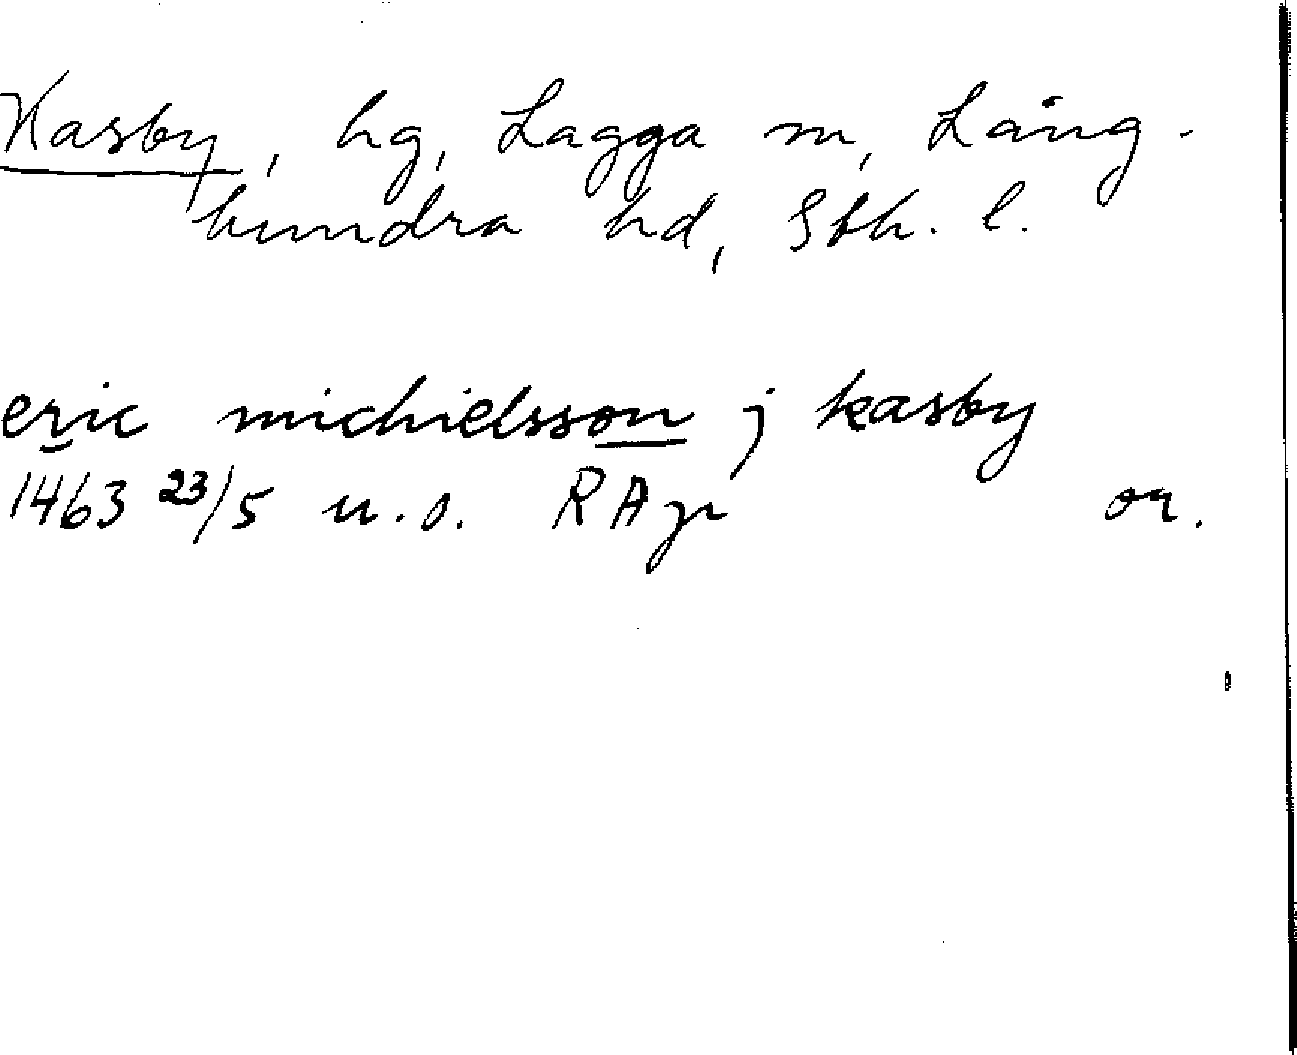 Kasby, hg, Lagga sn, Lång-
hundra hd, Sth. l.
eric michielsson j kasby
1463 23/5 u.o. RAp or.